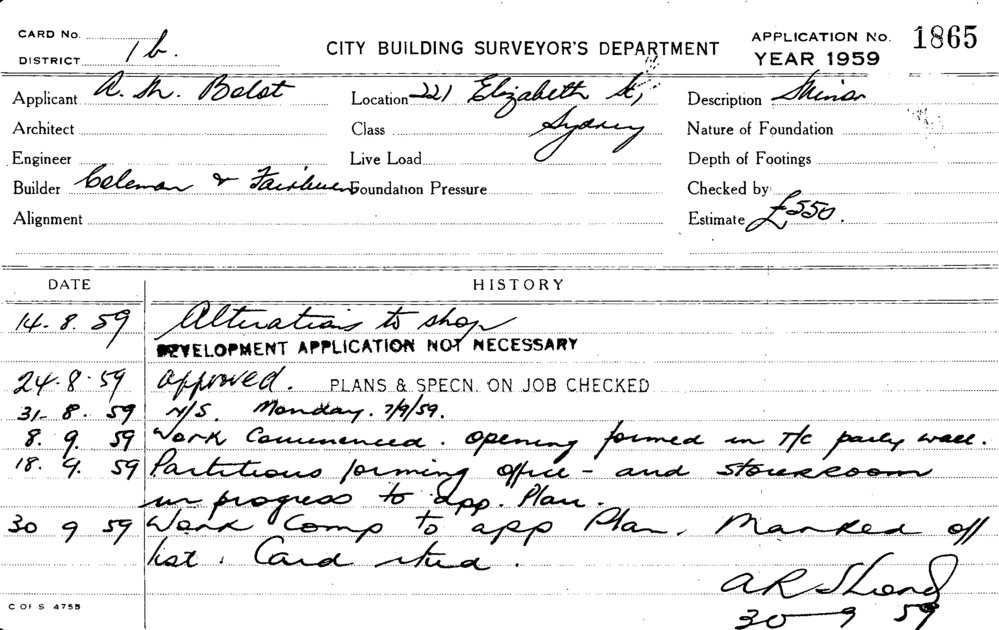 CARD No.
DISTRICT 1b.
CITY BUILDING SURVEYOR'S DEPARTMENT
APPLICATION No. 1865
YEAR 1959
Applicant A. M. Location 221 Elizabeth St, Description Minor
Architect Class Sydney Nature of Foundation
Engineer Live Load Depth of Footings
Builder Coleman & Foundation Pressure Checked by
Alignment Estimate £550.
DATE HISTORY
14. 8. 59 Alterations to shop
DEVELOPMENT APPLICATION NOT NECESSARY
24.8.59 Approved. PLANS & SPECN. ON JOB CHECKED
31- 8. 59 N/S. Monday. 7/9/59.
8. 9. 59 Work Commenced. Opening formed in T/c party wall.
18. 9. 59 Partitions forming office - and storeroom
in progress to app. Plan.
30 9 59 Work Comp to app Plan. Marked off
list. Card retd.
A R
30-9 59
C OF S 4755